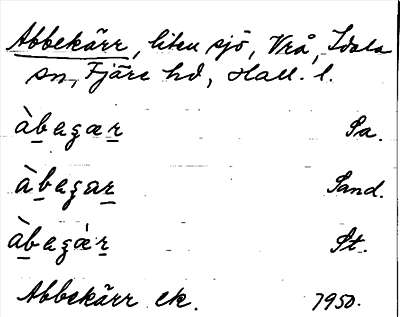 Abbekärr, liten sjö, Vrå, Idala
sn, Fjäre hd, Hall. l.
àbegær Sa.
àbegær Sand.
àbegæ̀r St.
Abbekärr ek. 1950.